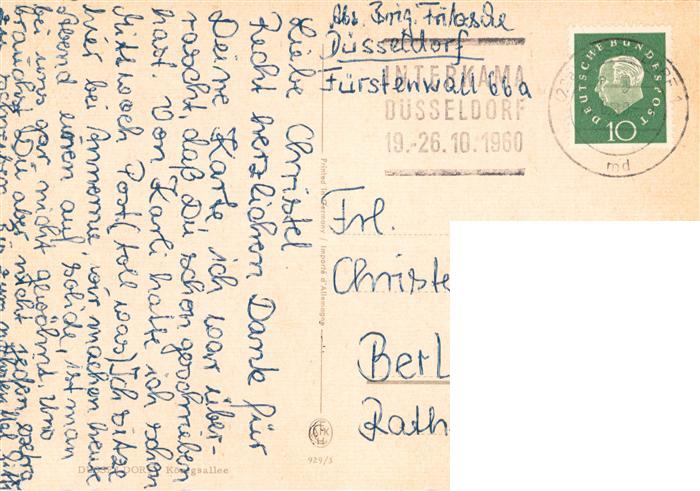 Liebe Christel
Recht herzlichen Dank für
Deine Karte ich war über-
rascht, daß Du schon geschrieben
hast. Von Karli hatte ich schon
Mittwoch Post (toll was) Ich sitze
hier bei Annemie, wir machen heute
Abend einen auf solide, ist man
bei uns gar nicht gewöhnt, uno
brauchst Du aber nicht
Abs. Brig. Fritzsche
Düsseldorf
Fürstenwall 66a
INTERKAMA
DÜSSELDORF
19.-26.10.1960
DEUTSCHE BUNDESPOST
10
md
Printed in Germany / Importé d'Allemagne
Frl.
Christe
Berl
Rath
929/3
DÜSSELDORF Königsallee